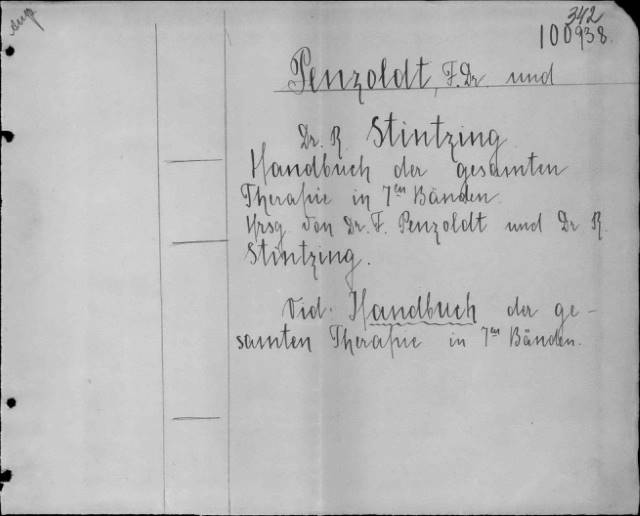 dup
342
100938.
Penzoldt, F. Dr. und
Dr. R. Stintzing
Handbuch der gesamten
Therapie in 7en Bänden.
Hrsg von Dr. F. Penzoldt und Dr R.
Stintzing.
Vid. Handbuch der ge-
samten Therapie in 7en Bänden.